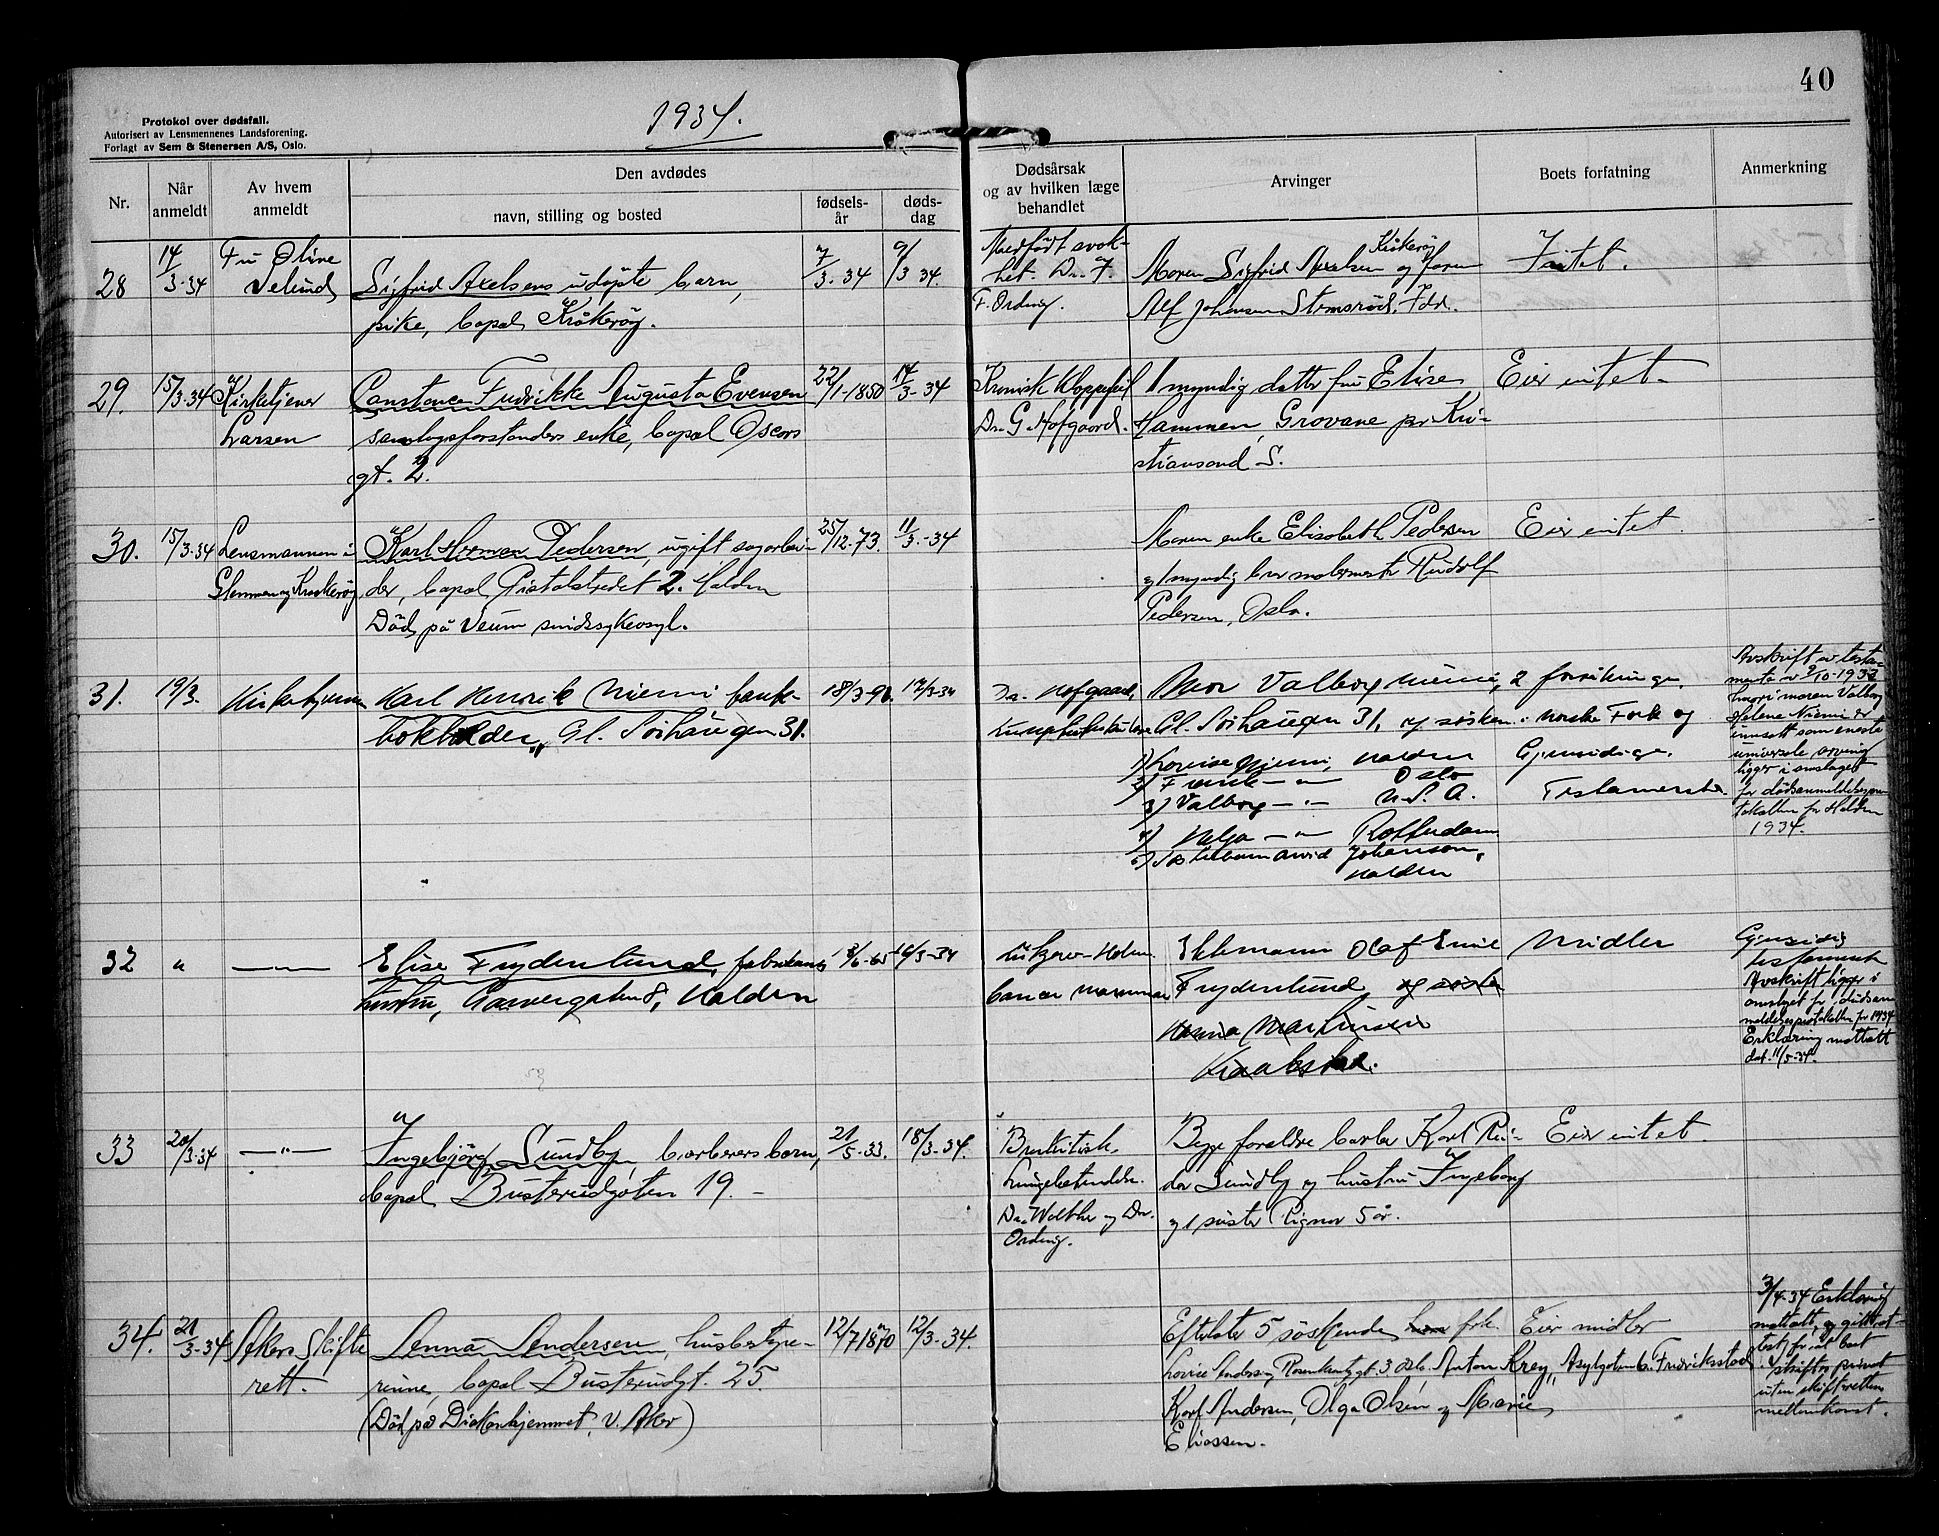 40
1934.
Protokol over dødsfall.
Autorisert av Lensmennenes Landsforening.
Forlagt av Sem & Stenersen A/S, Oslo.
Nr.
Når anmeldt
Av hvem anmeldt
Den avdødes
navn, stilling og bosted
fødsels-år
døds-dag
Dødsårsak
og av hvilken læge
behandlet
Arvinger
Boets forfatning
Anmerkning
28
14/3-34
Fru Oline
Sigfrid Axelsens udøpte barn,
pike, bopæl Kråkerøy.
7/3-34
9/3 34.
Medfødt svak-
het. Dr. F.
F. Ording.
Kråkerøy
Moren Sigfrid Axelsen og faren
Alf Johansen Stomsrød, Idd.
Intet.
29.
15/3-34
Kirketjener
Larsen
Constance Fredrikke Augusta Evensen
samlagsforstanders enke, bopæl Oscars
gt. 2.
22/1-1850
14/3-34
Kronisk Kloppefeil
Dr. G. Hofgaard.
1 myndig datter fru Elise
Hammen, Grovane pr. Kri-
stiansand S.
Eier intet.
30.
15/3-34
Lensmannen i
Glemmen og Kråkerøy
Karl Herman Pedersen, ugift sagarbei-
der, bopæl Pistolstredet 2. Halden
Død på Veum sindssykeasyl.
25/12-73.
11/3-34
Moren enke Elisabeth Pedersen
og 1 myndig bror malermester Rudolf
Pedersen, Oslo.
Eier intet.
31.
19/3.
Kirketjeneren
Karl Henrik Niemi, bank-
bokholder, Gl. Sørhaugen 31.
18/3-90
17/3-34
Dr. Hofgaard,
Mor Valborg Niemi,
Gl. Sørhaugen 31, og søsken:
1) Lovise Niemi, Halden
2) Frank — " — Oslo
3) Valborg — " — U.S.A.
4) Helga — " — Rotterdam
5) Arvid Johanson,
Halden
2 forsikringer
i Norske Folk og
Gjensidige.
Testamente.
Avskrift av testa-
mente av 9/10-1932
hvori moren Valborg
Helene Niemi er
innsatt som eneste
universelle arving
ligger i omslaget
for dødsanmeldelsespro-
tokollen for Halden
1934.
32
"
— " —
Elise Frydenlund, fabrikants
hustru, Garvergaten 8, Halden
16/3-34
Ektemann Olaf Emil
Frydenlund, og søster
Hanna Martinsen
Midler
Gjensidig
testamente
Avskrift ligger i
omslaget for dødsan-
meldelsesprotokollen for 1934
Erklæring mottatt
dat. 11/5-34.
33
20/3-34
— " —
Ingebjørg Sundby, barberersbarn,
bopæl Busterudgaten 19. -
21/5-33.
18/3-34.
Bronkitisk
Lungebetendelse.
Dr. Wolther og Dr.
Ording.
Begge foreldre barber Karl Rei-
dar Sundby og hustru Ingeborg
og 1 søster Rignor 5 år.
Eier intet.
34.
21/3-34
Akers Skifte
rett.
Anna Andersen, husbestyre-
rinne, bopæl Busterudgt. 25.
(Død på Diakonhjemmet, V. Aker)
12/7 1870
12/3-34.
Efterlater 5 søskende, frk.
Lovise Andersen, Rosenkrantzgt. 3 Oslo, Anton Krey, Asylgaten 6, Fredriksstad
Karl Andersen, Olga Olsen og Marie
Eliassen.
Eier midler
3/4-34 Erklæring
mottatt, og gitt at-
test for at boet
skiftes privat
uten skifterettens
mellemkomst.